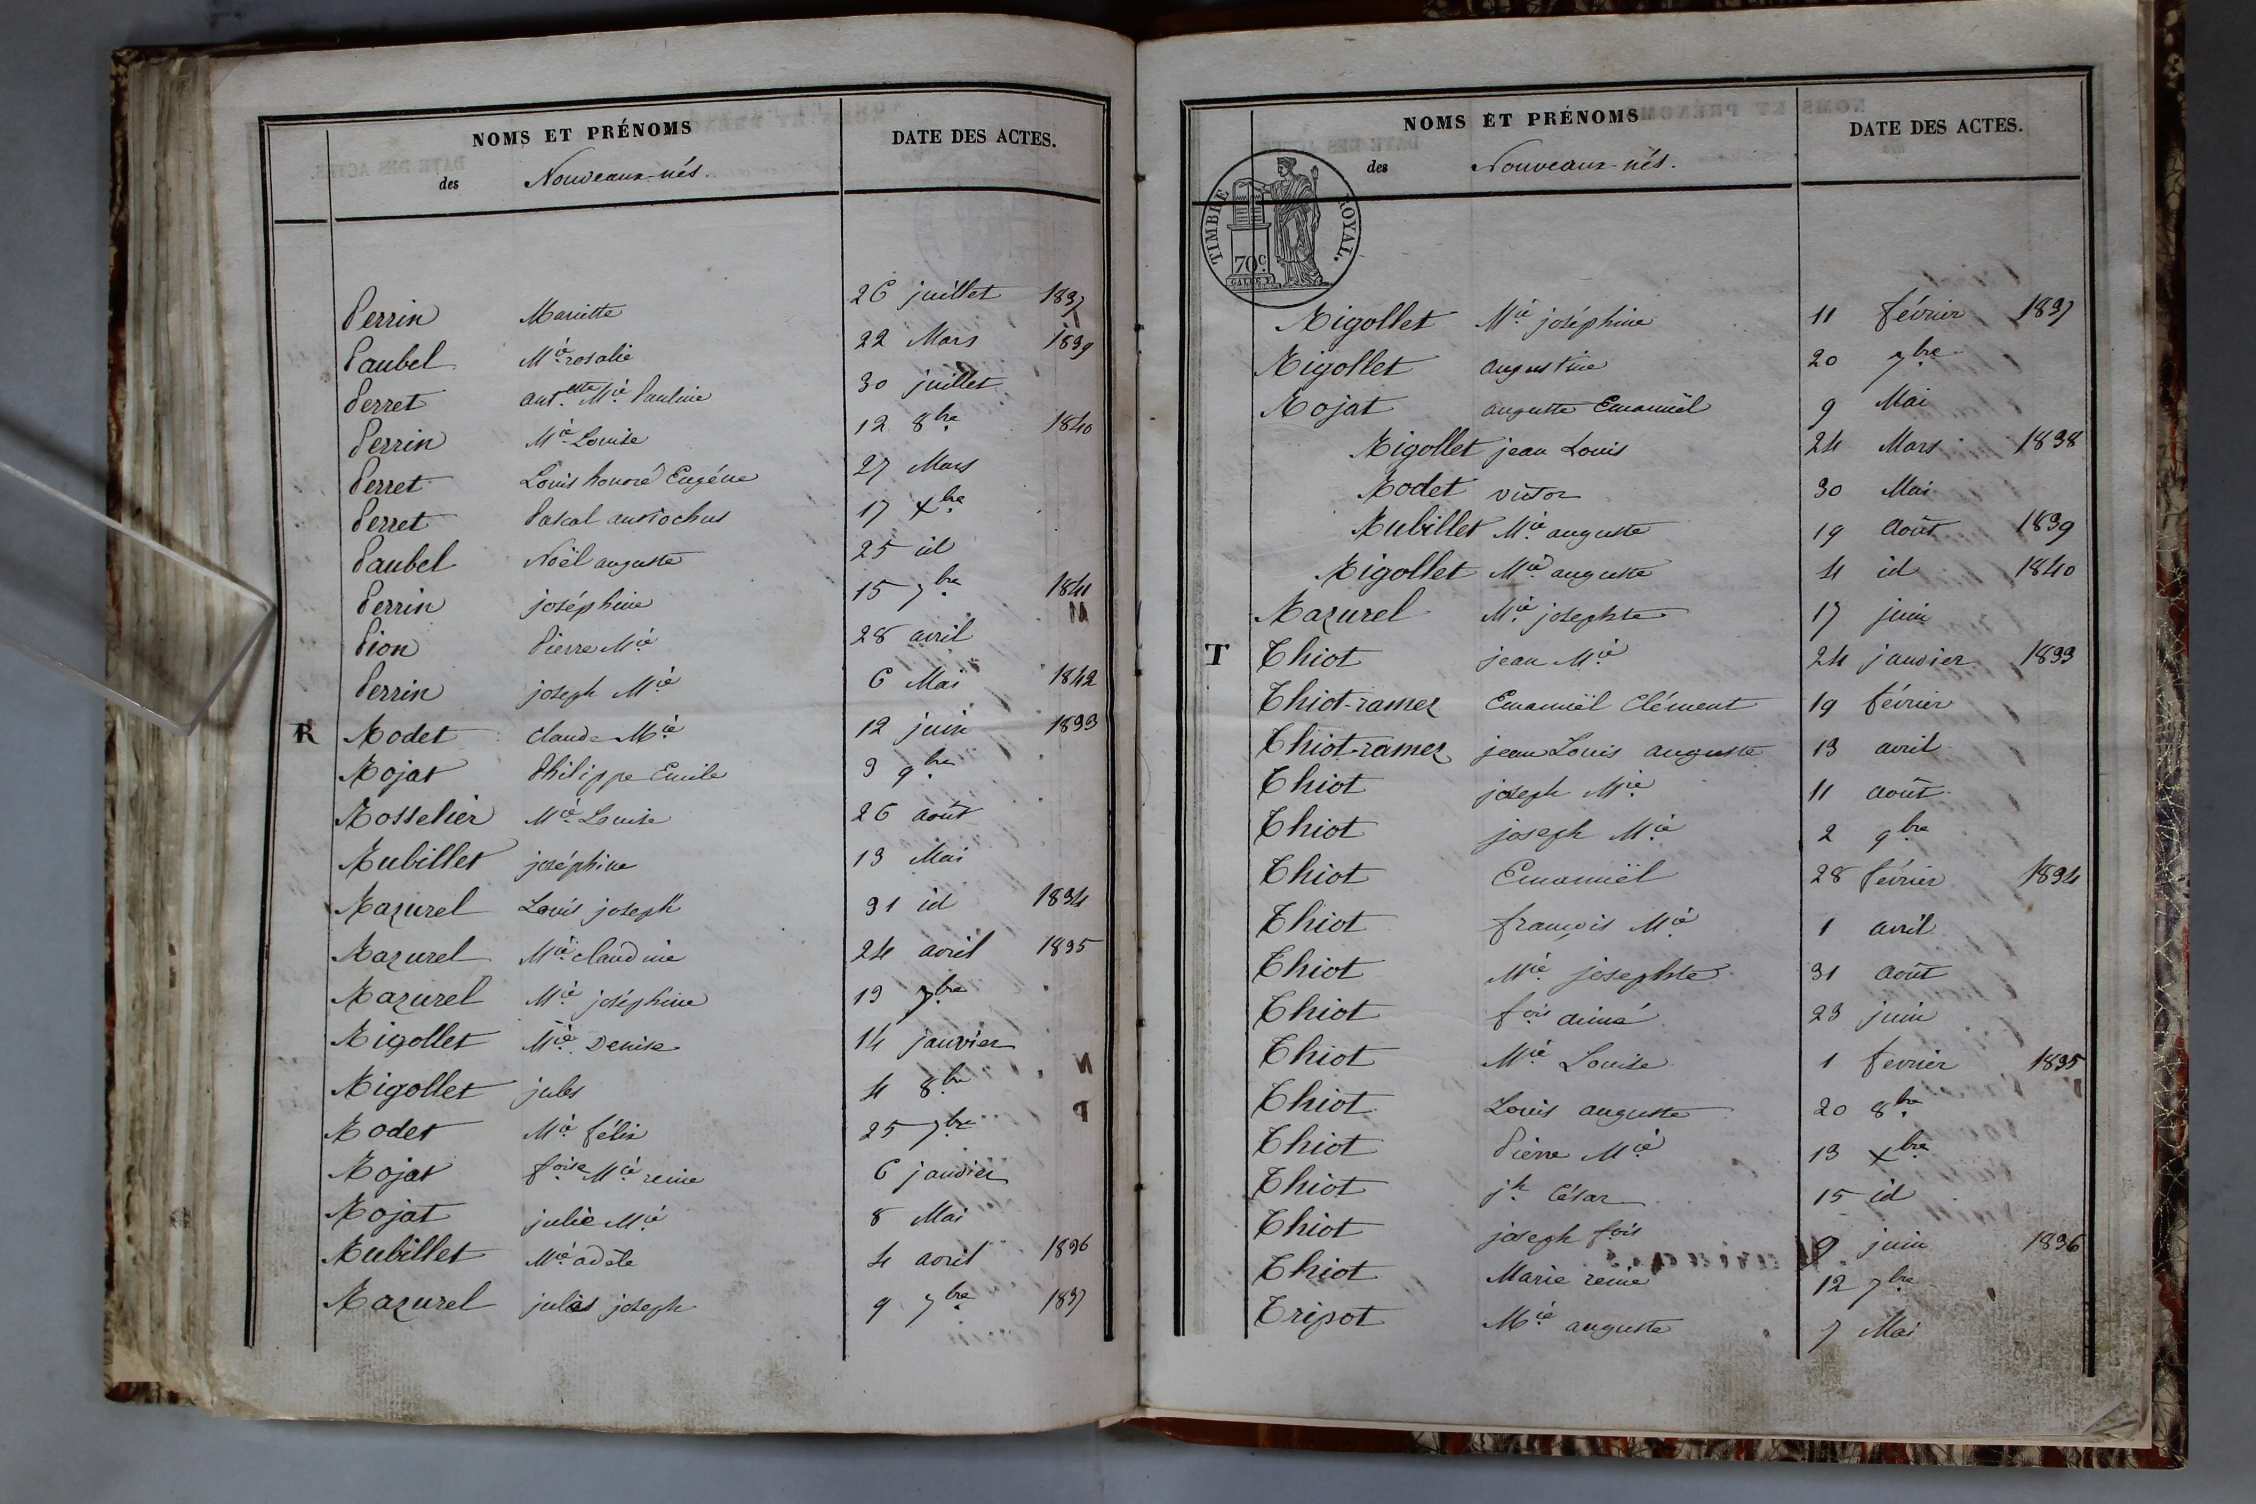 NOMS ET PRÉNOMS
des Nouveaux-nés.
DATE DES ACTES.
Perrin Mariette 26 juillet 1837
Paubel Mie rosalie 22 Mars 1839
Perret antette Mie Pauline 30 juillet
Perrin Mie Louise 12 8bre 1840
Perret Louis honoré Eugéne 27 Mars
Perret Pascal antiochus 17 xbre
Paubel Noël auguste 25 id
Perrin joséphine 15 7bre 1841
Pion Pierre Mie 28 avril
Perrin joseph Mie 6 Mai 1842
R Rodet claude Mie 12 juin 1833
Rojat Philippe Emile 3 9bre
Rosselier Mie Louise 26 août
Rubillet joséphine 13 Mai
Razurel Louis joseph 31 id 1834
Razurel Mie claudine 24 avril 1835
Razurel Mie joséphine 19 7bre
Rigollet Mie Denise 14 janvier
Rigollet jules 4 8bre
Rodet Mie félix 25 7bre
Rojat foise Mie reine 6 janvier
Rojat julie Mie 8 Mai
Rubillet Mie adèle 4 avril 1836
Razurel jules joseph 9 7bre 1837
NOMS ET PRÉNOMS
des Nouveaux-nés.
DATE DES ACTES.
TIMBRE ROYAL.
70c
Rigollet Mie joséphine 11 février 1837
Rigollet augustine 20 7bre
Rojat auguste Emanuël 9 Mai
Rigollet jean Louis 24 Mars 1838
Rodet victor 30 Mai
Rubillet Mie auguste 19 Août 1839
Rigollet Mie auguste 4 id 1840
Razurel Mie josephte 17 juin
T Thiot jean Mie 24 janvier 1833
Thiot-ramez Emanuël Clément 19 février
Thiot-ramez jean Louis auguste 13 avril
Thiot joseph Mie 11 août
Thiot joseph Mie 2 9bre
Thiot Emanuël 28 février 1834
Thiot françois Mie 1 avril
Thiot Mie josephte 31 août
Thiot fois aimé 23 juin
Thiot Mie Louise 1 fevrier 1835
Thiot Louis auguste 20 8bre
Thiot Pierre Mie 13 xbre
Thiot jh César 15 id
Thiot joseph fois 9 juin 1836
Thiot Marie reine 12 7bre
Tripot Mie auguste 7 Mai